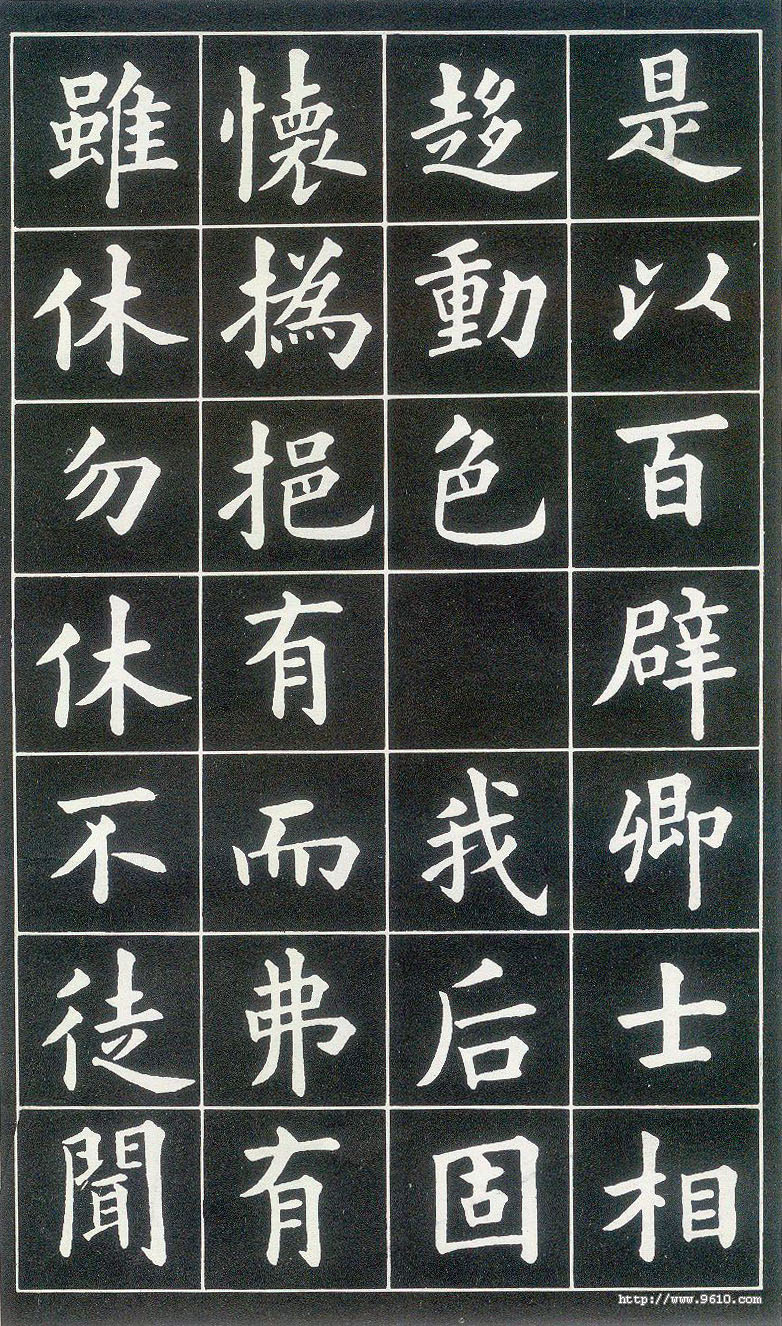 是以百辟卿士相
趍動色 我后固
懐撝挹有而弗有
雖休勿休不徒聞
http://www.9610.com